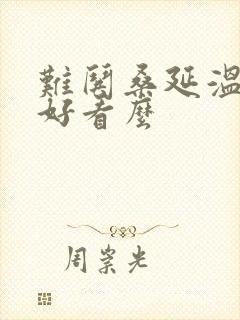 難鬨桑延溫
好看麼
周崇光